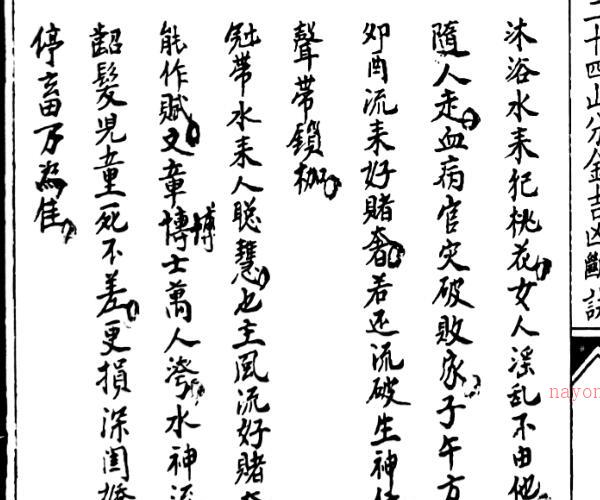 二十四山分金吉凶斷訣
沐浴水来犯桃花女人淫乱不由他
隨人走血病官灾破敗家子午方
卯酉流来好賭奢若还流破生神
聲帶鎖枷
冠帶水来人聪慧也主風流好賭
能作賦文章博士萬人
博
水神流
髫髮児童死不差更損深闺
停畜万為佳
nayon